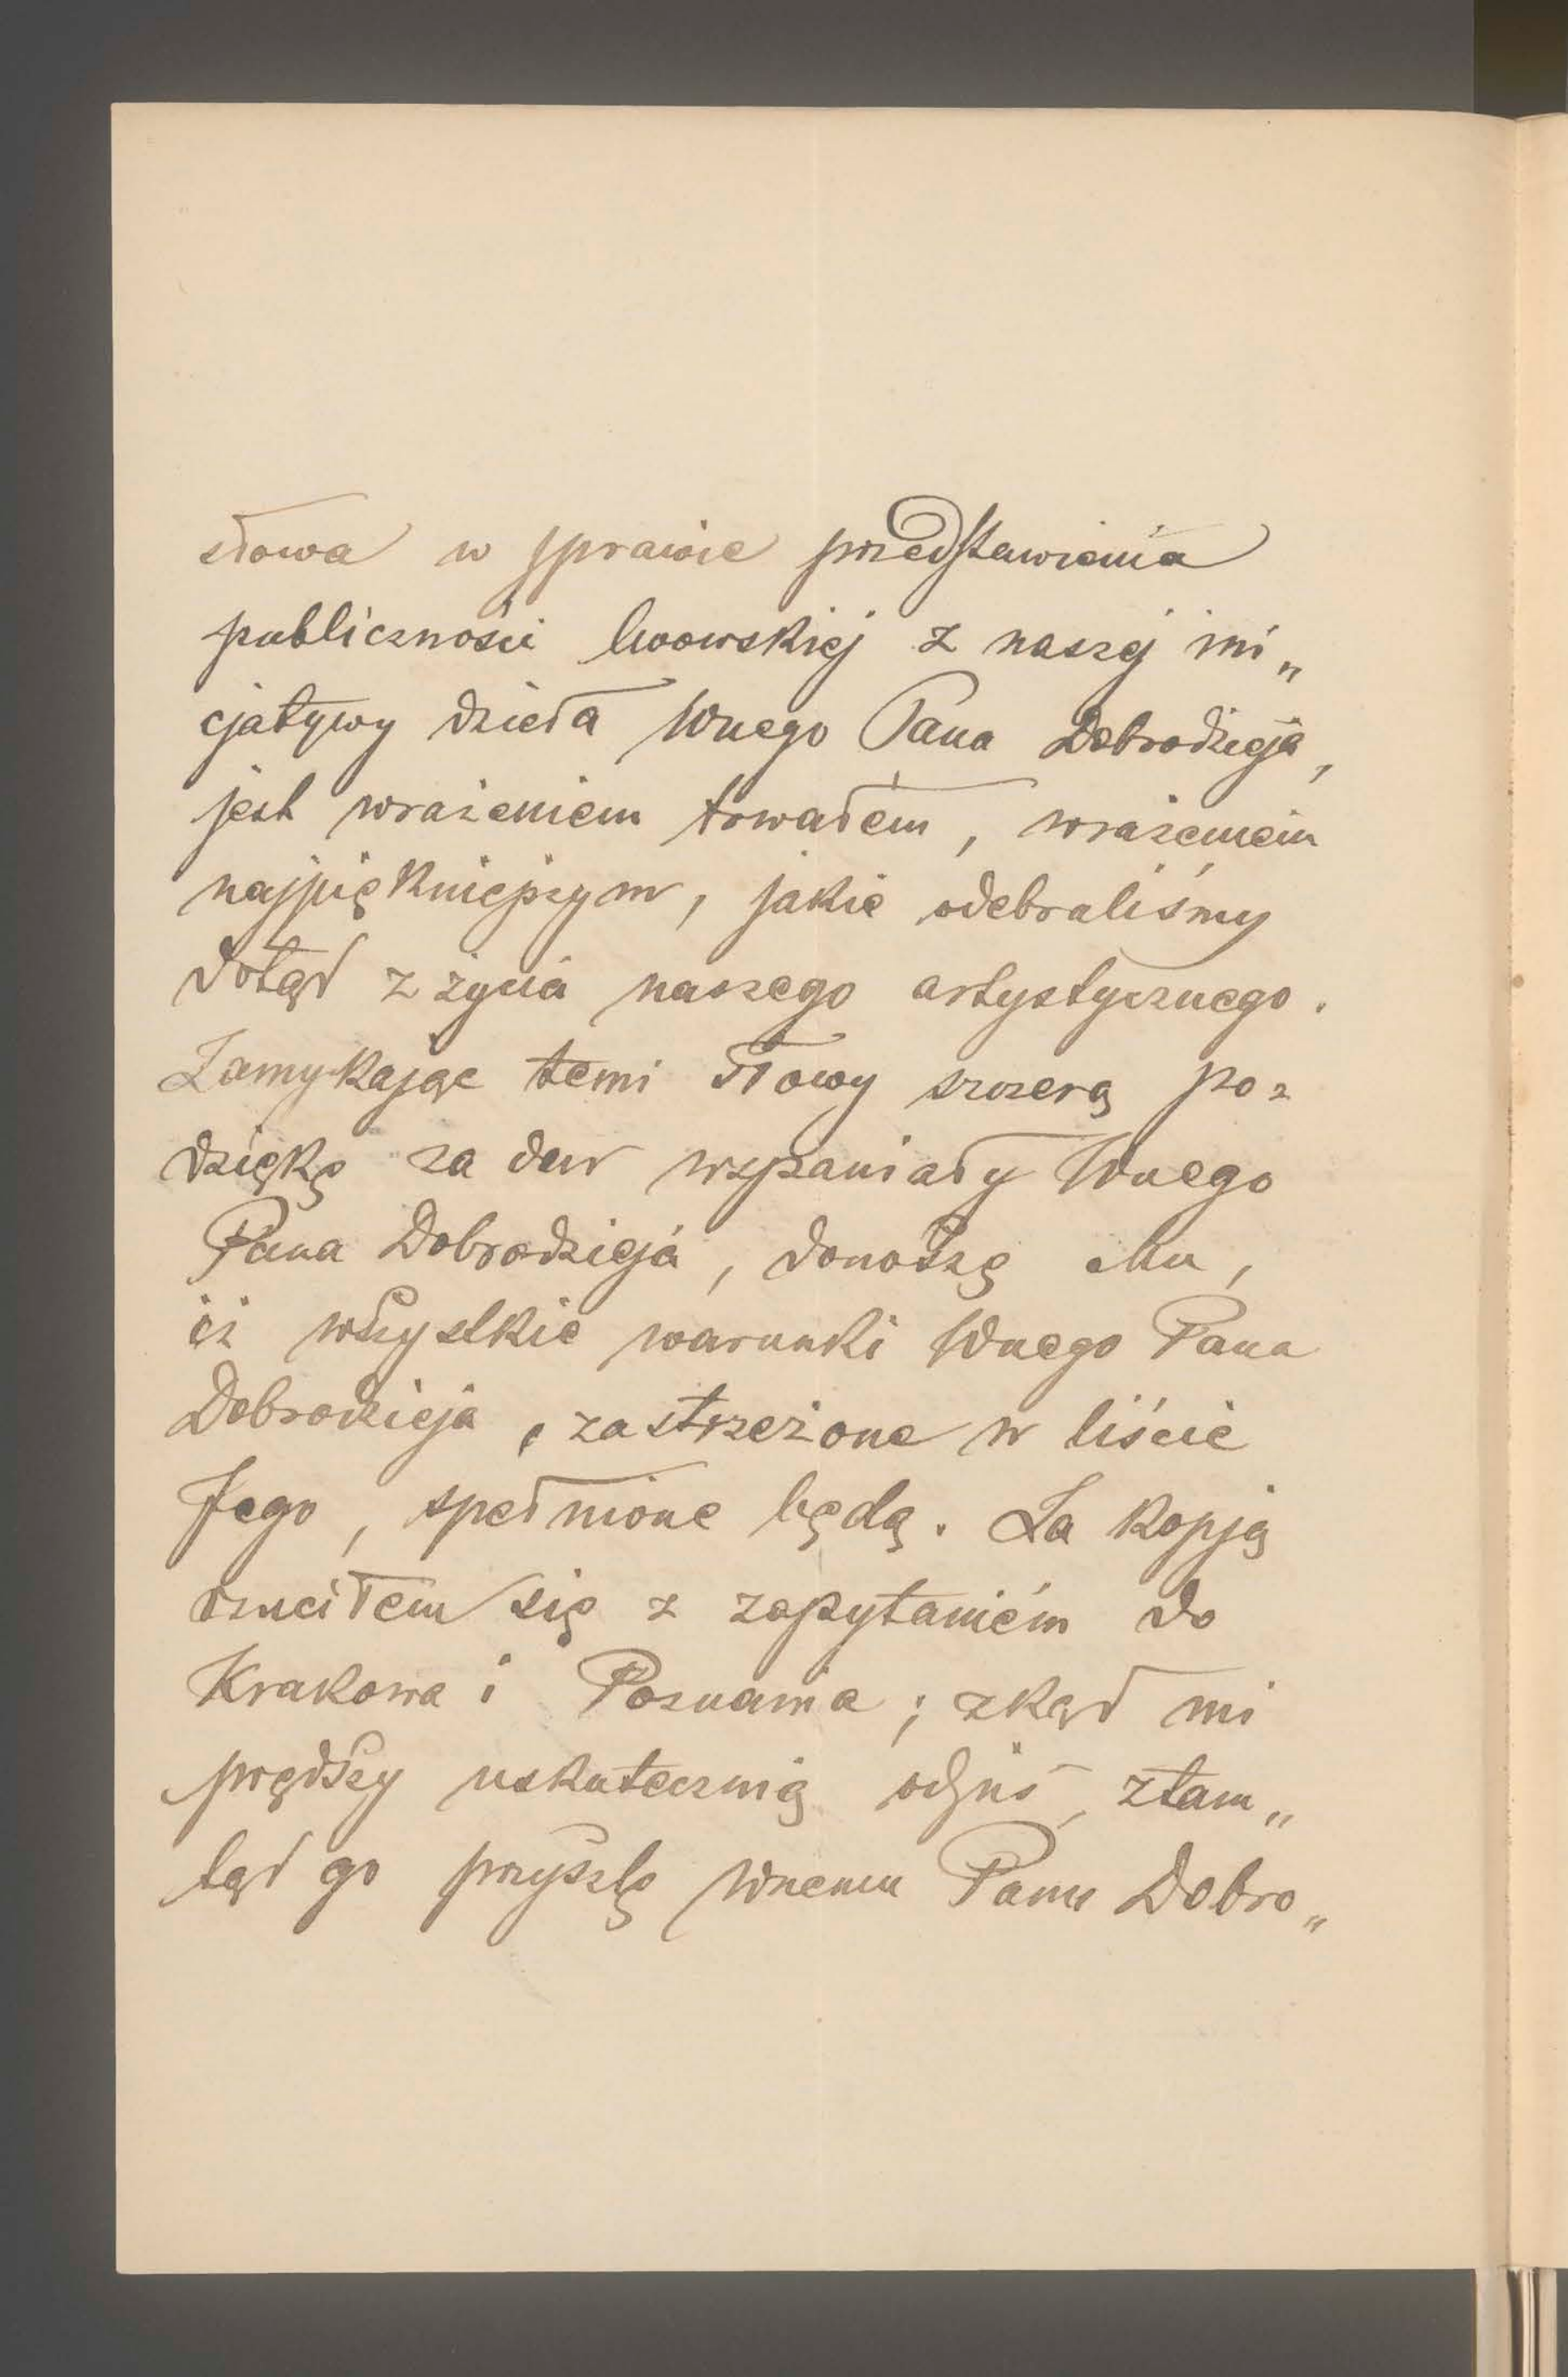 słowa w sprawie przedstawienia
publiczności lwowskiej z naszej ini„
cjatywy dzieła Wnego Pana Dobrodzieja,
jest wrażeniem trwałem, wrażeniem
najpiękniejszym, jakie odebraliśmy
dotąd z życia naszego artystycznego.
Zamykając temi słowy szczerą po=
dziękę za dar wspaniały Wnego
Pana Dobrodzieja, donoszę Mu,
iż wszystkie warunki Wnego Pana
Dobrodzieja, zastrzeżone w liście
Jego, spełnione będą. Za kopją
rzuciłem się z zapytaniem do
Krakowa i Poznania; zkąd mi
prędszy uskutecznią odpis, ztam„
tąd go przyszlę Wnemu Panu Dobro„